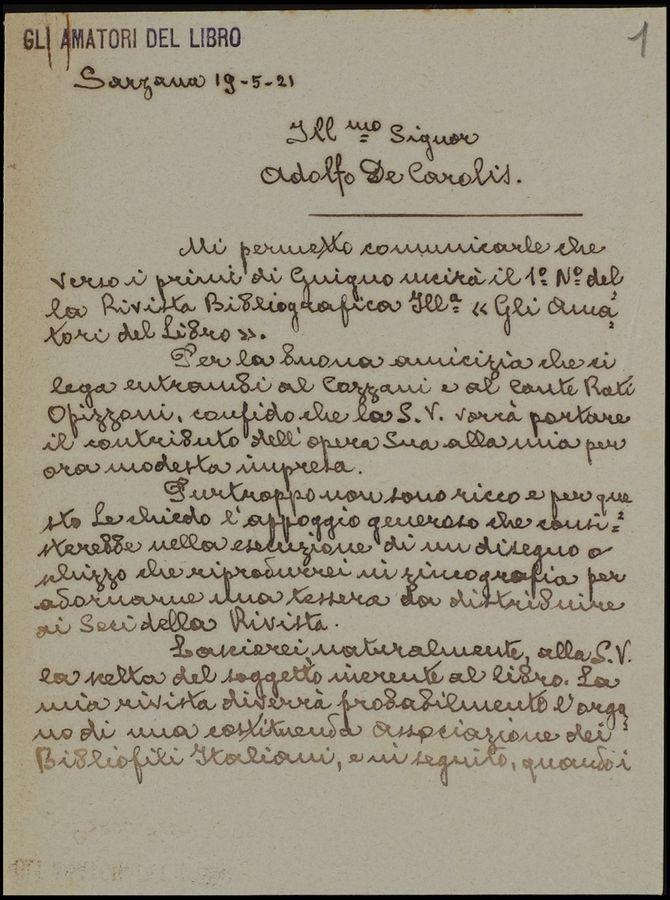 GLI AMATORI DEL LIBRO
1
Sarzana 19-5-21
Ill mo Signor
Adolfo De Carolis.
Mi permetto comunicarle che
verso i primi di Guigno uscirà il 1º Nº del
la Rivista Bibliografica Illª « Gli Ama=
tori del Libro ».
Per la buona amicizia che ci
lega entrambi al Cozzani e al Conte Rati
Opizzoni, confido che la S.V. vorrà portare
il contributo dell'opera Sua alla mia per
ora modesta impresa.
Purtroppo non sono ricco e per que
sto Le chiedo l'appoggio generoso che consi=
sterebbe nella esecuzione di un disegno o
schizzo che riprodurrei in zincografia per
adornarne una tessera da distribuire
ai Soci della Rivista.
Lascierei, naturalmente, alla S.V.
la scelta del soggetto inerente al libro. La
mia rivista diverrà probabilmente l'orga=
no di una costituenda Associazione dei
Bibliofili Italiani, e in seguito, quando i